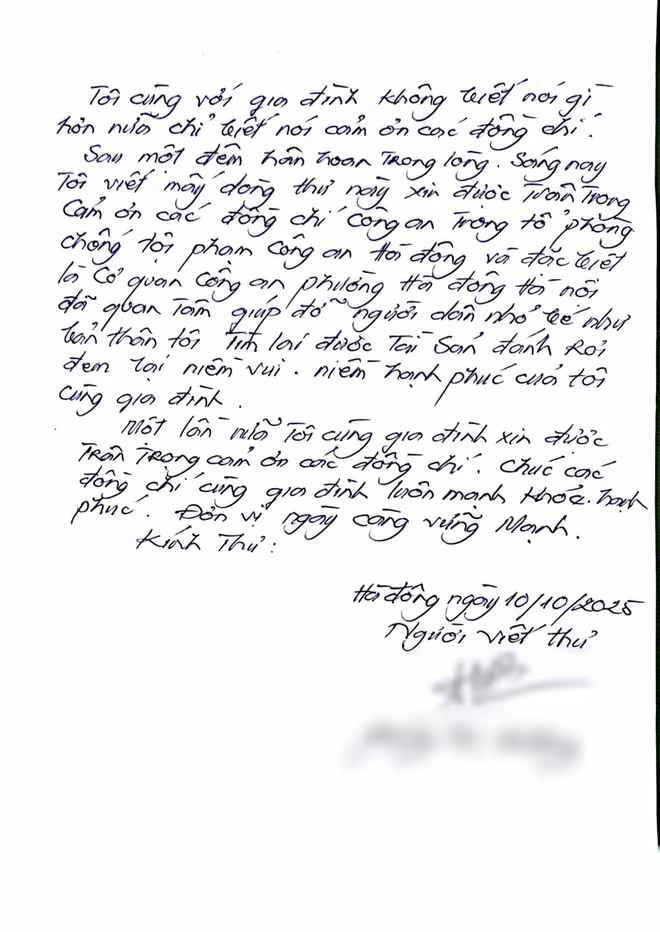 Tôi cùng với gia đình không biết nói gì
hơn nữa chỉ biết nói cảm ơn các đồng chí.
Sau một đêm hân hoan trong lòng. Sáng nay
Tôi viết mấy dòng thư này xin được Trân Trọng
Cảm ơn các đồng chí công an Trong tổ phòng
chống tội phạm Công an Hà đông và đặc biệt
là Cơ quan Công an phường Hà đông Hà nội
đã quan Tâm giúp đỡ người dân nhỏ bé như
bản thân tôi Tìm lại được Tài Sản đánh Rơi
đem lại niềm vui. niềm hạnh phúc của tôi
cùng gia đình.
Một lần nữa Tôi cùng gia đình xin được
Trân Trọng cảm ơn các đồng chí. Chúc các
đồng chí cùng gia đình luôn mạnh khỏe. hạnh
phúc. Đơn vị ngày càng vững Mạnh.
Kính Thư:
Hà đông ngày 10/10/2025
Người viết thư